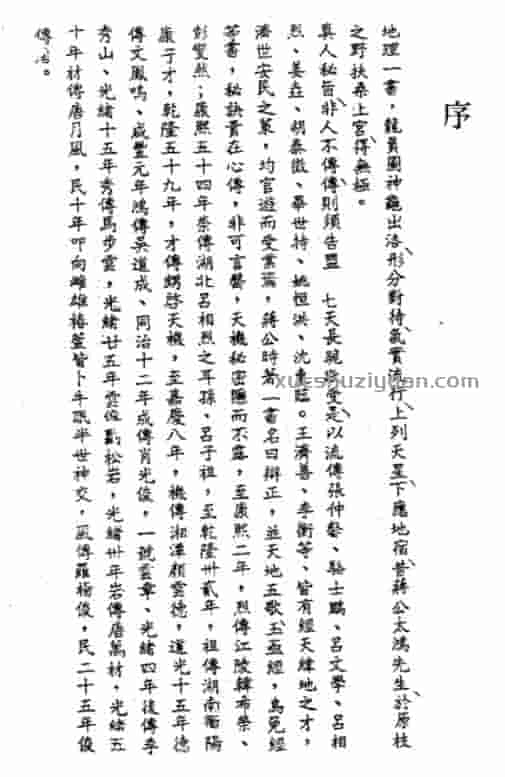 序
地理一書，龍負圖神龜出洛、形分對待氣實流行、上列天星、下應地宿、昔蔣公太鴻先生、於原枝
之野扶桑上宮、得無極。
真人秘旨、非人不傳、傳則須告盟　七天長跪、受是、以流傳張仲馨、駱士鵬、呂文學、呂相
烈、姜垚、胡泰徵、畢世持、姚恒洪、沈重臨。王濟善、李衡等、皆有經天緯地之才，
濟世安民之策，均官遊而受業焉，蔣公時著一書名曰辯正，並天地五歌、玉函經，烏兔經
等書，秘訣貴在心傳，非可言罄，天機秘密隱而不露，至康熙二年，烈傳江陵韓布榮、
彭燮然；康熙五十四年崇傳湖北呂相烈之耳孫、呂子祖，至乾隆卅貳年，祖傳湖南衡陽
康于才，乾隆五十九年，才傳甥啓天機，至嘉慶八年，機傳湘潭顏雲德，道光十五年德
傳文鳳鳴、咸豐元年鴻傳吳道成、同治十二年成傳肖光俊，一號雲章、光緒四年後傳李
秀山、光緒十五年秀傳馬步雲，光緒廿五年雲傳劉松岩，光緒卅年岩傳唐萬材，光緒五
十年材傳唐月風，民十年叩向雌雄樁籃皆卜午眠半世神交，風傳羅楊俊，民二十五年俊
傳洁。
xueshuziyuan.com